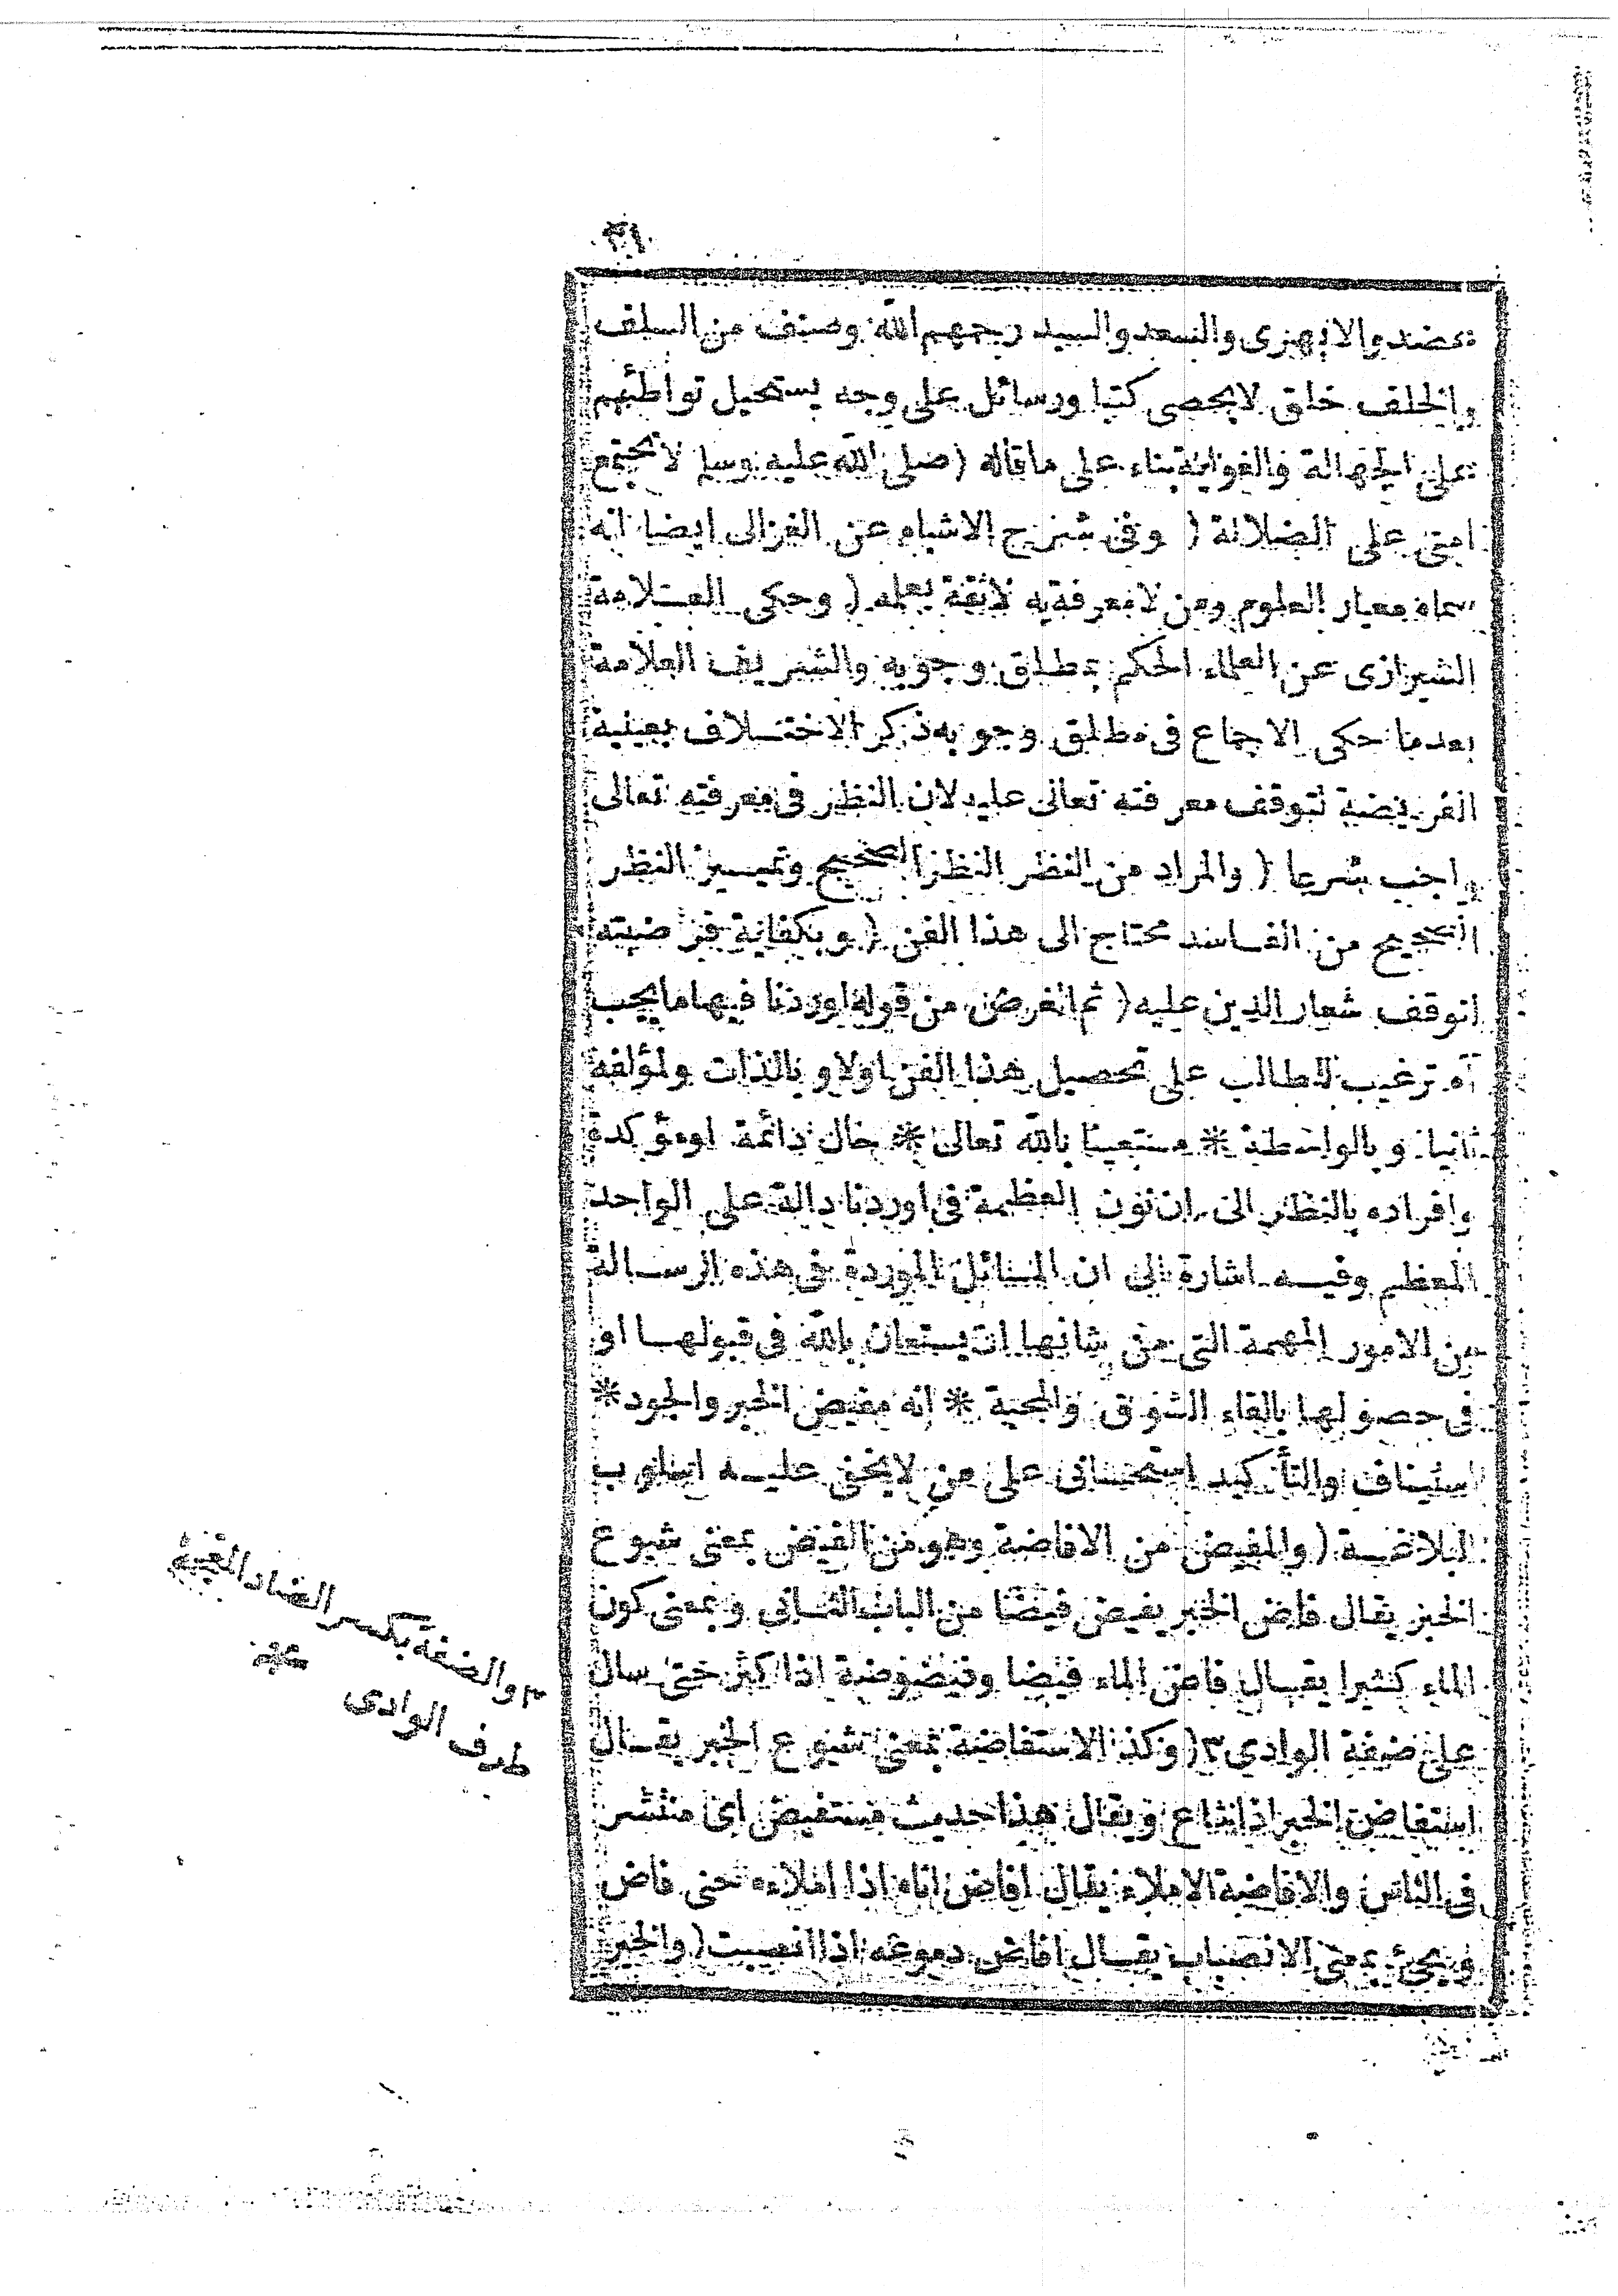 ٣١
عضد والابهرى والسعد والسيد رحمهم الله وصنف من السلف
والخلف خلق لايحصى كتبا ورسائل على وجه يستحيل تواطئهم
على الجهالة والغواية بناء على ماقاله (صلى الله عليه وسلم لاتجتمع
امتى على الضلالة ( وفى شرح الاشباه عن الغزالى ايضا انه
سماه معيار العلوم ومن لامعرفة به لاثقة بعلمه ( وحكى العلامة
الشيرازى عن العلماء الحكم بمطلق وجوبه والشريف العلامة
بعدما حكى الاجماع فى مطلق وجوبه ذكر الاختلاف بعينية
الفريضة لتوقف معرفته تعالى عليه لان النظر فى معرفته تعالى
واجب شرعا ( والمراد من النظر النظر الصحيح وتمييز النظر
الصحيح من الفاسد محتاج الى هذا الفن ( وبكفاية فرضيته
لتوقف شعار الدين عليه ( ثم الغرض من قوله اوردنا فيها مايجب
آه ترغيب للطالب على تحصيل هذا الفن اولا وبالذات ولمؤلفه
ثانيا وبالواسطة * مستعينا بالله تعالى * حال دائمة اومؤكدة
وافراده بالنظر الى ان نون العظمة فى اوردنا دالة على الواحد
المعظم وفيه اشارة الى ان المسائل الموردة فى هذه الرسالة
من الامور المهمة التى من شانها ان يستعان بالله فى قبولها او
فى حصولها بالقاء الشوق والمحبة * انه مفيض الخير والجود *
استيناف والتأكيد استحسانى على من لايخفى عليه اسلوب
البلاغية ( والمفيض من الافاضة وهو من الفيض بمعنى شيوع
الخبر يقال فاض الخبر يفيض فيضا من الباب الثانى وبمعنى كون
الماء كثيرا يقال فاض الماء فيضا وفيضوضة اذا كثر حتى سال
على ضفة الوادى ٣ ( وكذا الاستفاضة بمعنى شيوع الخبر يقال
استفاض الخبر اذا شاع ويقال هذا حديث مستفيض اى منتشر
فى الناس والافاضة الاملاء يقال افاض اناه اذا املاءه حتى فاض
ويجئ بمعنى الانصباب يقال افاض دموعه اذا انصبت ( والخير
٣ والضفة بكسر الضاد المعجمة
طرف الوادى
منه